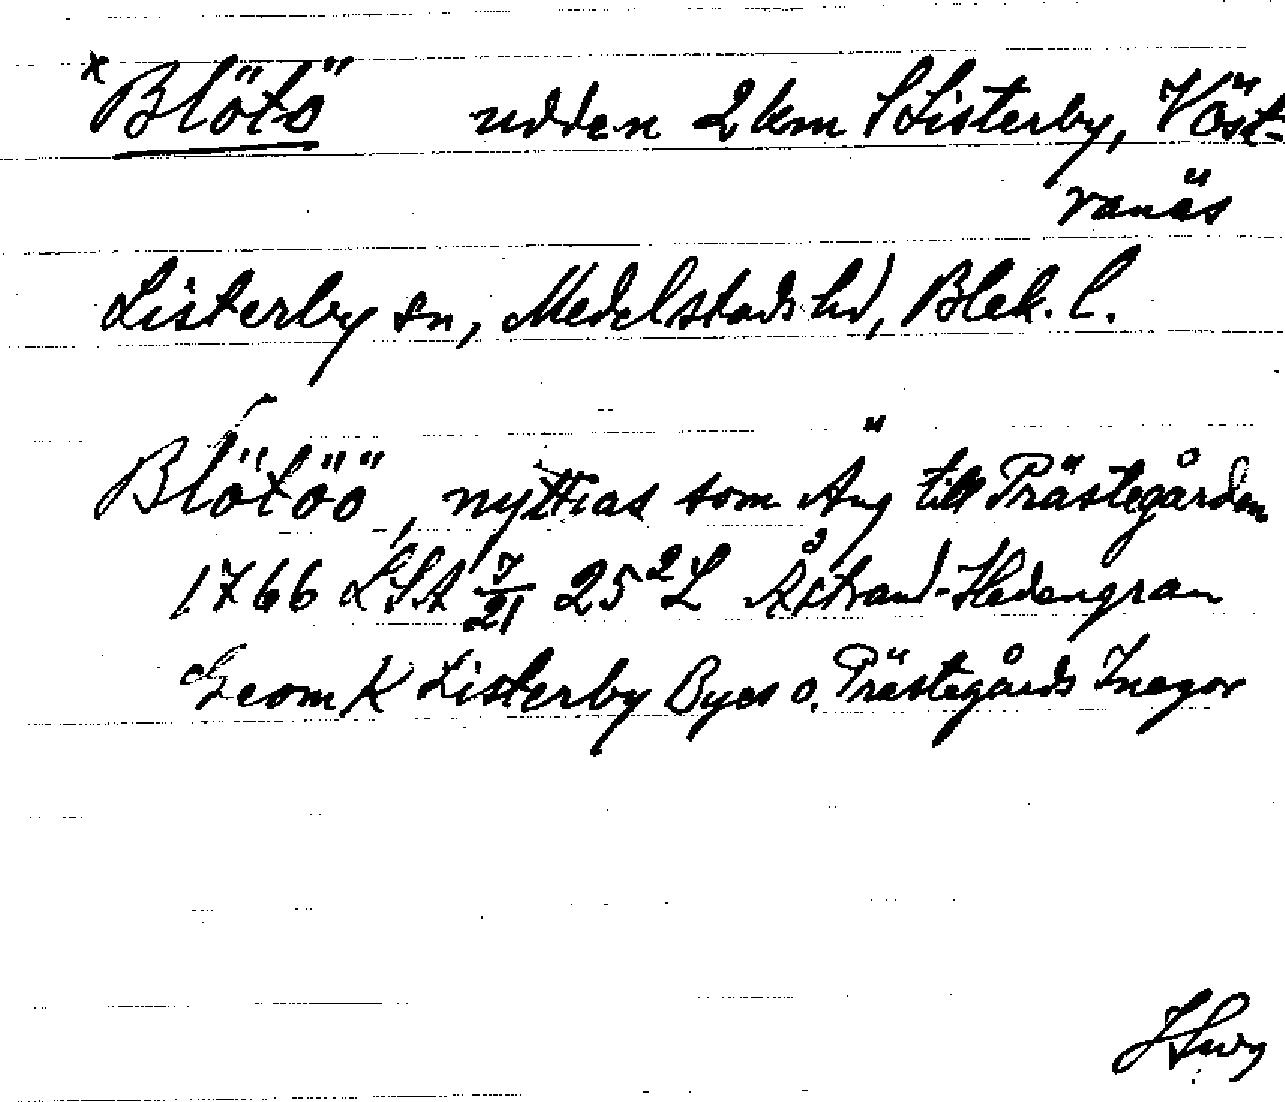 x Blötö udden 2 km S Listerby, Väst-
ranäs
Listerby sn, Medelstads hd, Blek. l.
Blötöö, nyttias som Äng till Prästegården
1766 LSA 7/21 25² L Åstrand-Hedengran
Geom K Listerby Byes o. Prästegårds Inegor